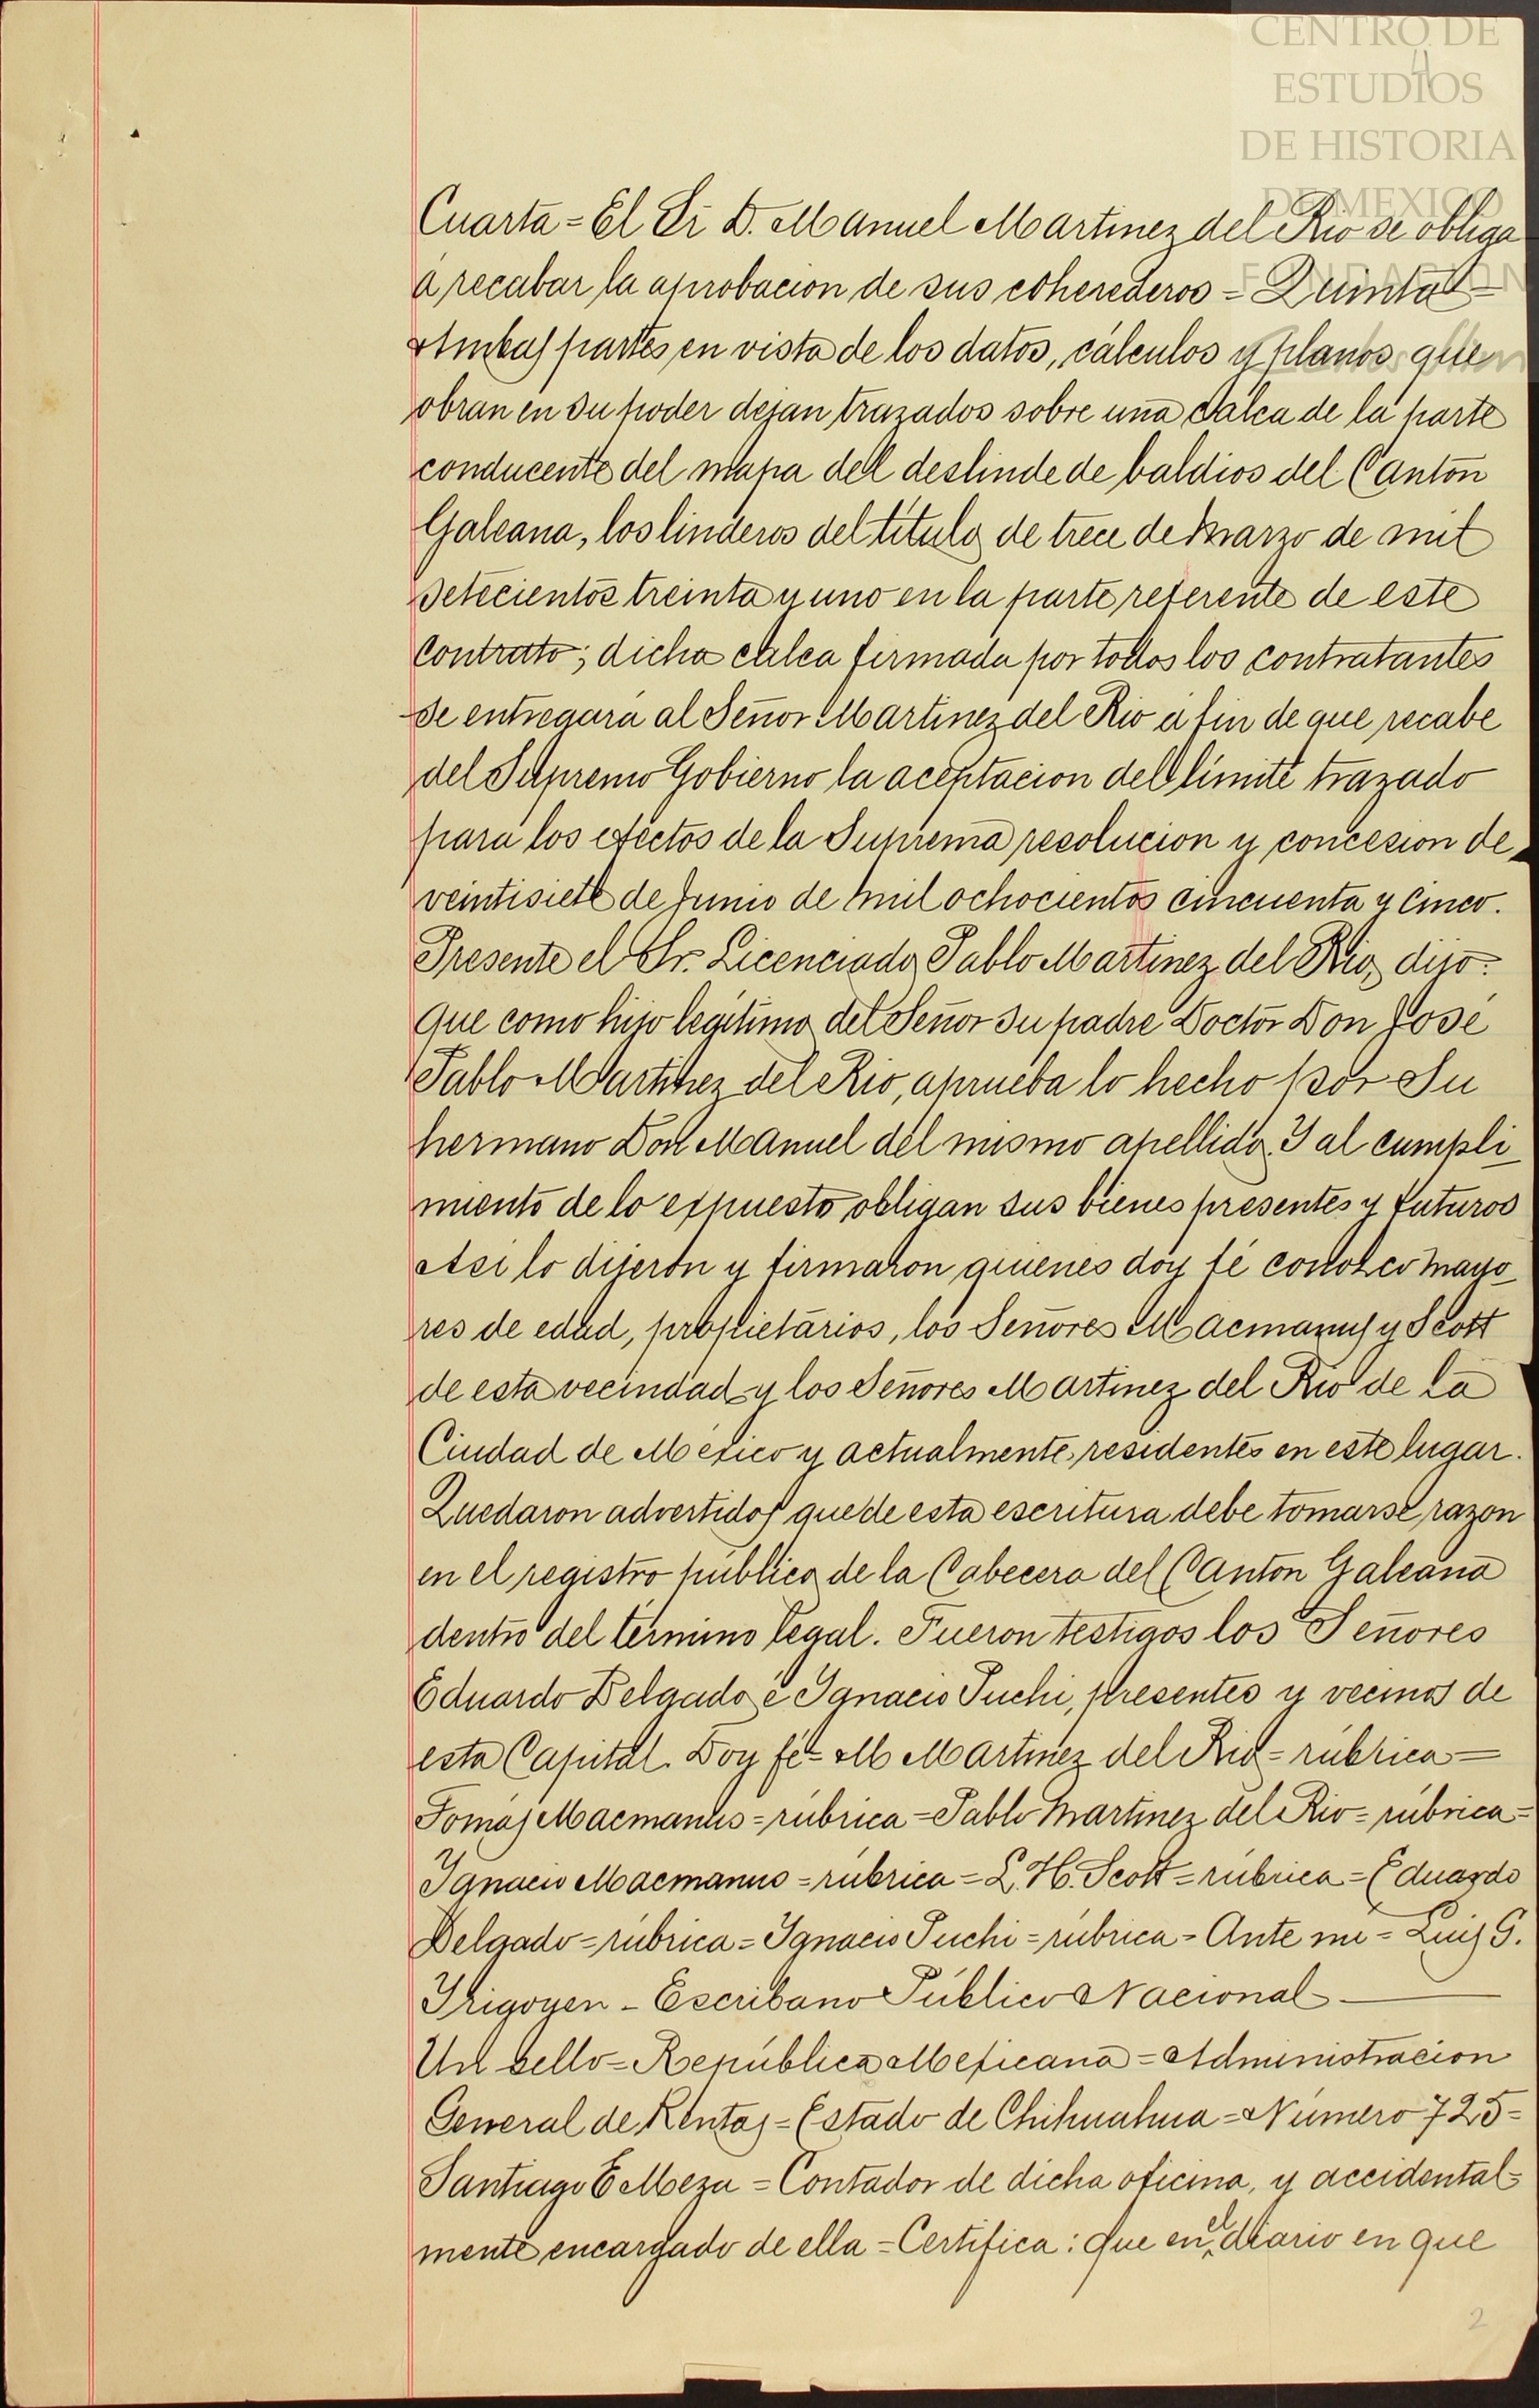 CENTRO DE
ESTUDIOS
DE HISTORIA
DE MEXICO
FUNDACION
4
Cuarta = El Sr D. Manuel Martinez del Rio se obliga
á recabar la aprobacion de sus coherederos = Quinta =
Ambas partes en vista de los datos, cálculos y planos que
obran en su poder dejan trazados sobre una calca de la parte
conducente del mapa del deslinde de baldios del Canton
Galeana, los linderos del título de trece de Marzo de mil
setecientos treinta y uno en la parte referente de este
contrato; dicha calca firmada por todos los contratantes
se entregará al Señor Martinez del Rio á fin de que recabe
del Supremo Gobierno la aceptacion del límite trazado
para los efectos de la Suprema resolucion y concesion de
veintisiete de Junio de mil ochocientos cincuenta y cinco.
Presente el Sr. Licenciado Pablo Martinez del Rio, dijo:
que como hijo legítimo del Señor su padre Doctor Don José
Pablo Martinez del Rio, aprueba lo hecho por su
hermano Don Manuel del mismo apellido. Y al cumpli_
miento de lo expuesto obligan sus bienes presentes y futuros
Asi lo dijeron y firmaron quienes doy fé conozco mayo_
res de edad, propietarios, los Señores Macmanus y Scott
de esta vecindad y los Señores Martinez del Rio de la
Ciudad de México y actualmente residentes en este lugar.
Quedaron advertidos que de esta escritura debe tomarse razon
en el registro público de la Cabecera del Canton Galeana
dentro del término legal. Fueron testigos los Señores
Eduardo Delgado é Ygnacio Puchi, presentes y vecinos de
esta Capital. Doy fé = M Martinez del Rio = rúbrica =
Tomas Macmanus = rúbrica = Pablo Martinez del Rio = rúbrica =
Ygnacio Macmanus = rúbrica = L. H. Scott = rúbrica = Eduardo
Delgado = rúbrica = Ygnacio Puchi = rúbrica = Ante mi = Luis G.
Yrigoyen - Escribano Público Nacional
Un sello = República Mexicana = Administracion
General de Rentas = Estado de Chihuahua = Número 725 =
Santiago E Meza = Contador de dicha oficina, y accidental=
mente encargado de ella = Certifica: que en el diario en que
2